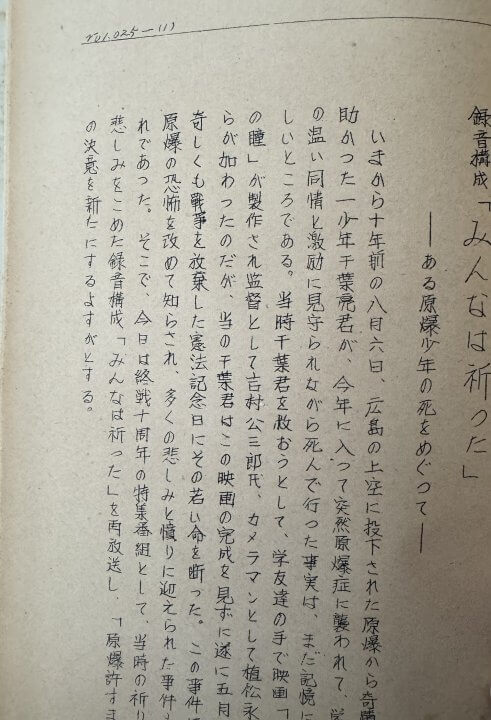 Vol.025-(1)
録音構成「みんなは祈った」
——ある原爆少年の死をめぐつて——
いまから十年前の八月六日、広島の上空に投下された原爆から奇
助かつた一少年千葉亮君が、今年に入つて突然原爆症に襲われて、
の温い同情と激励に見守られながら死んで行つた事実は、まだ記憶に
しいところである。当時千葉君を救おうとして、学友達の手で映画「
の瞳」が製作され監督として吉村公三郎氏、カメラマンとして植松永
らが加わつたのだが、当の千葉君はこの映画の完成を見ずに遂に五月
奇しくも戦争を放棄した憲法記念日にその若い命を断つた。この事件
原爆の恐怖を改めて知らされ、多くの悲しみと憤りに迎えられた事件
れであつた。そこで、今日は終戦十周年の特集番組として、当時の祈り
悲しみをこめた録音構成「みんなは祈った」を再放送し、「原爆許すま
の決意を新たにするよすがとする。